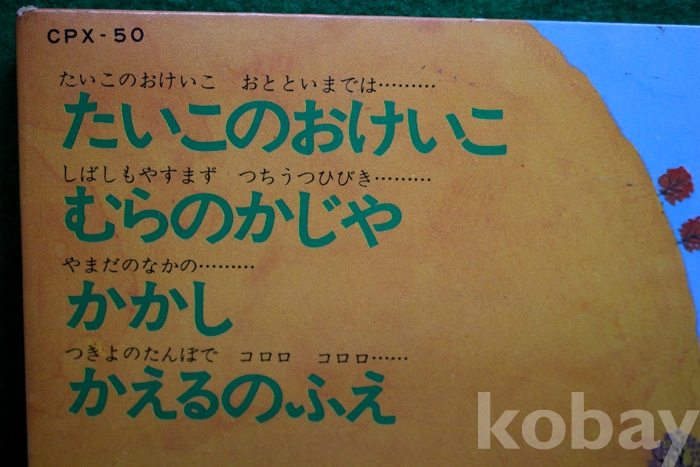 CPX-50
たいこのおけいこ　おとといまでは………
たいこのおけいこ
しばしもやすまず　つちうつひびき………
むらのかじや
やまだのなかの………
かかし
つきよのたんぼで　コロロ　コロロ……
かえるのふえ
kobay